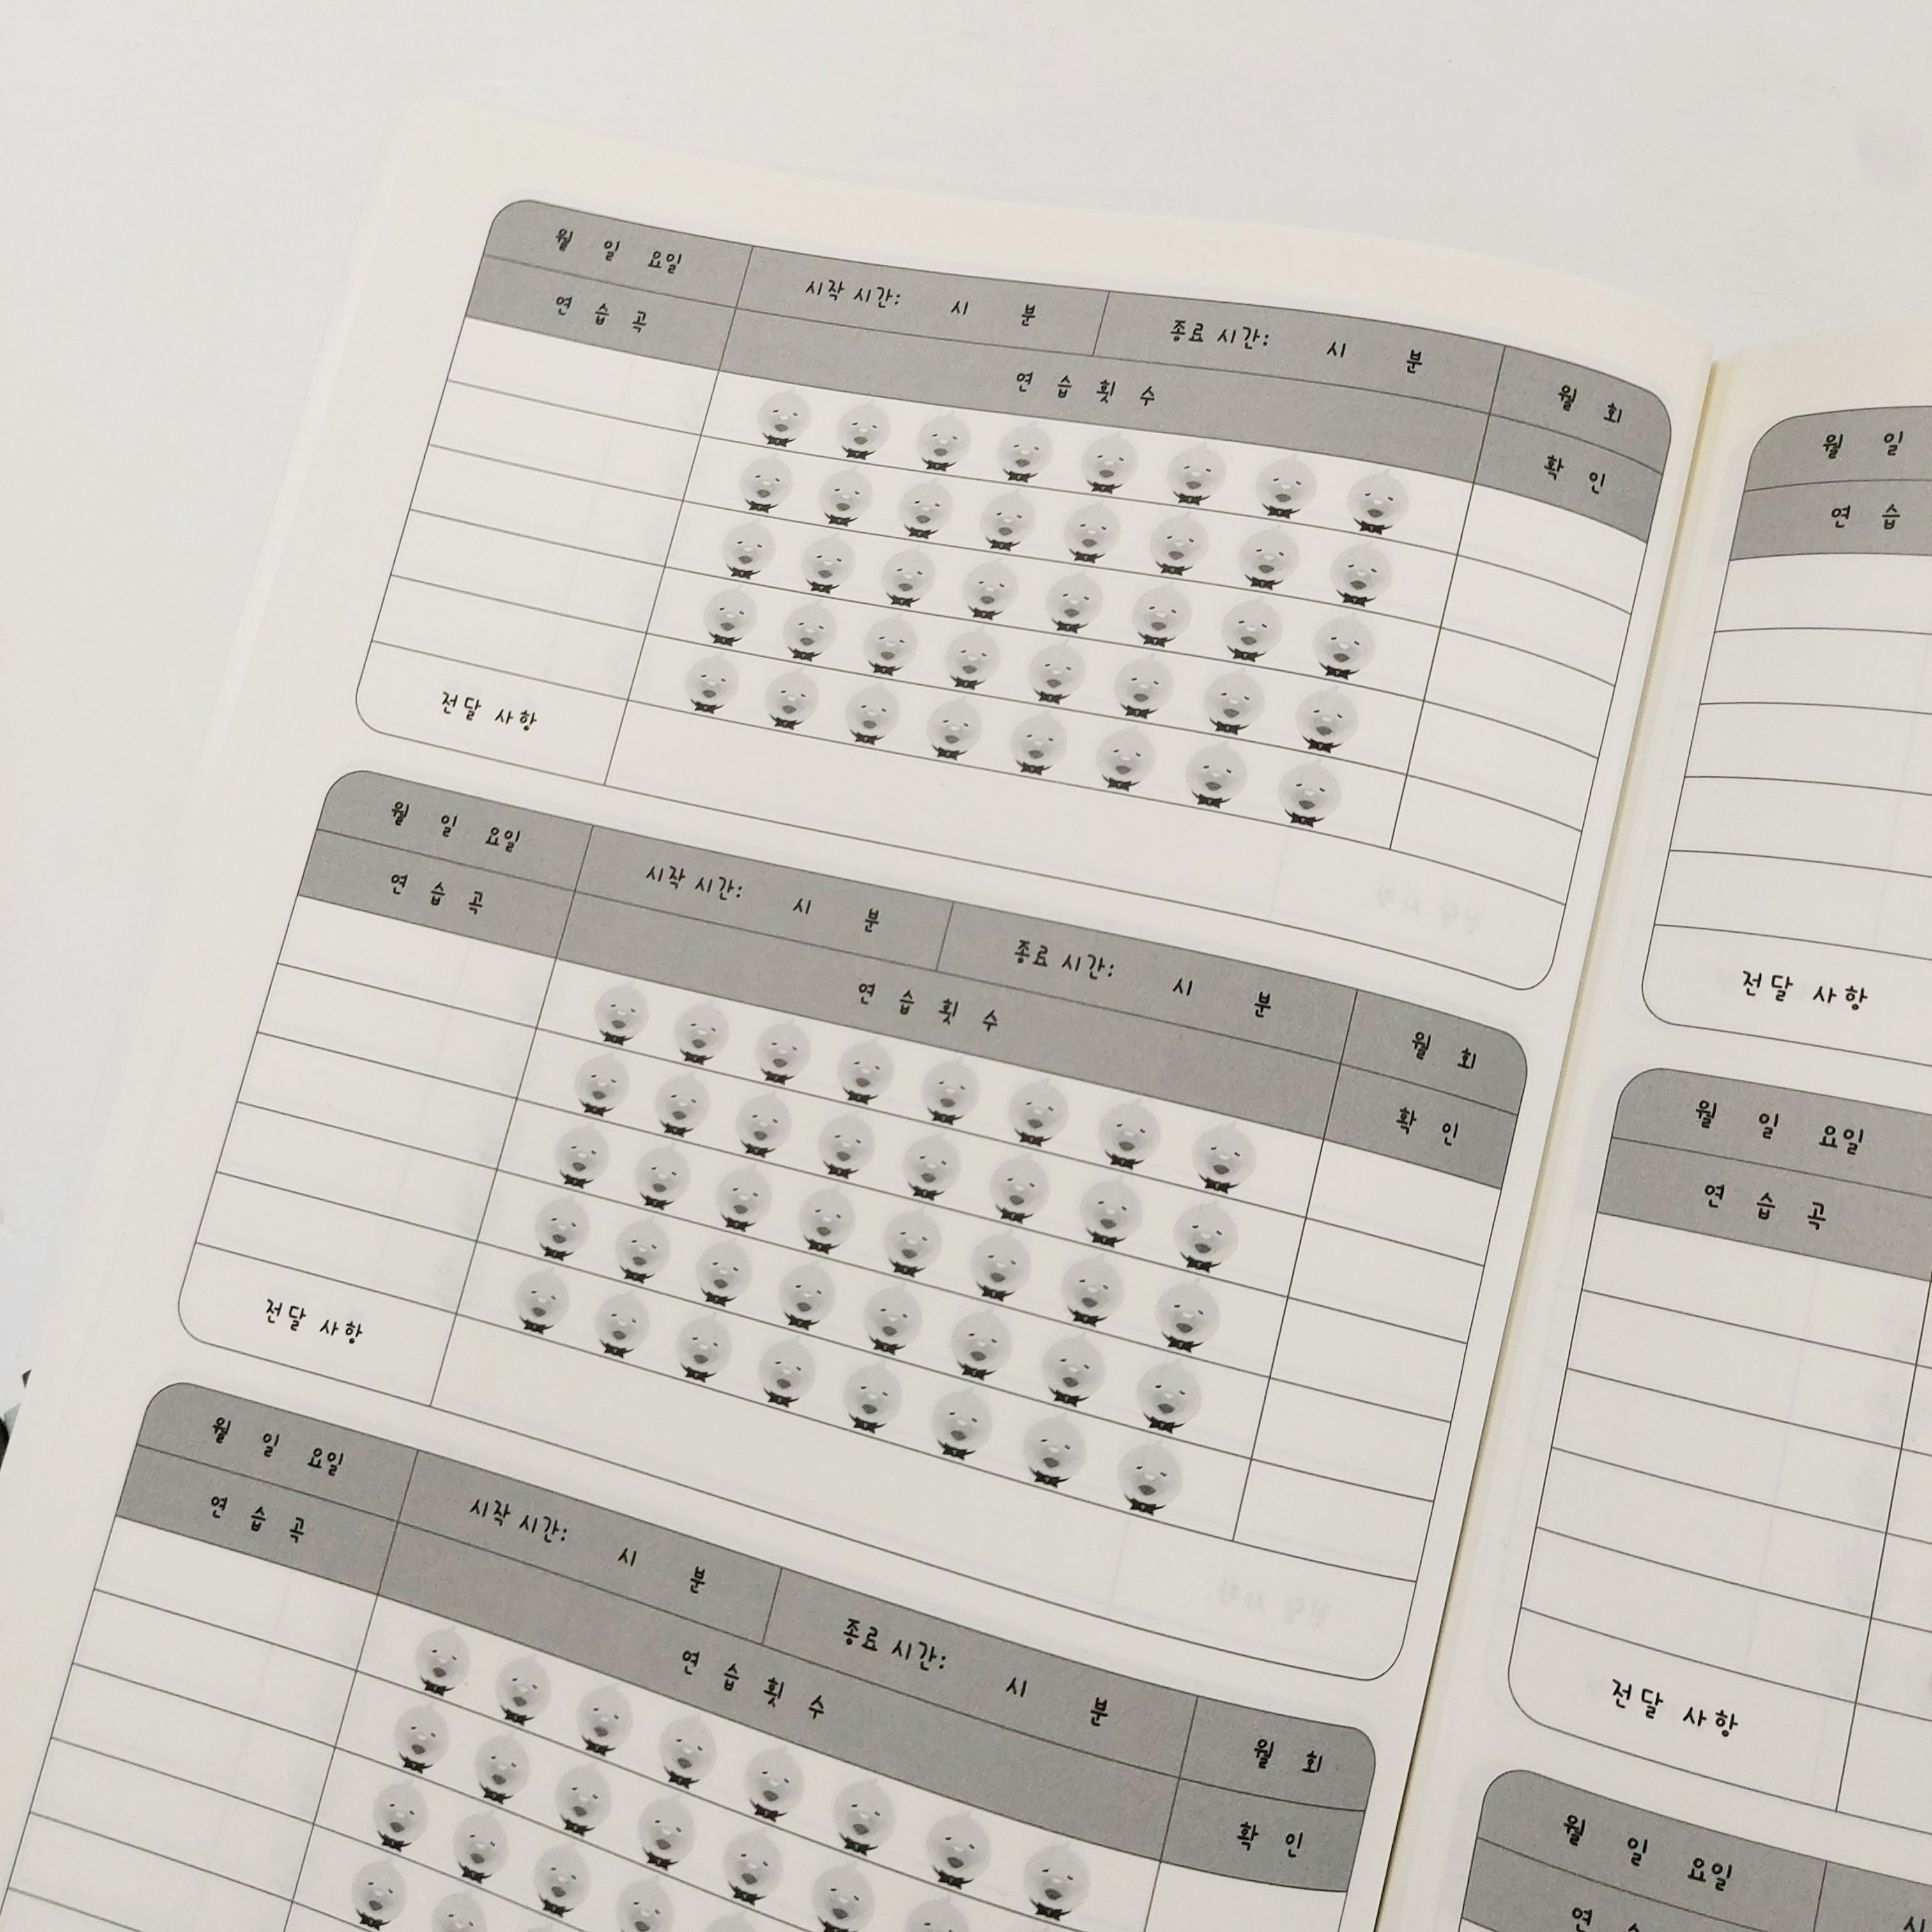 월 일 요일 시작 시간: 시 분 종료 시간: 시 분 월 회
연 습 곡 연 습 횟 수 확 인
전달 사항
월 일 요일 시작 시간: 시 분 종료 시간: 시 분 월 회
연 습 곡 연 습 횟 수 확 인
전달 사항
월 일 요일 시작 시간: 시 분 종료 시간: 시 분 월 회
연 습 곡 연 습 횟 수 확 인
월 일
연 습
전달 사항
월 일 요일
연 습 곡
전달 사항
월 일 요일
연 습